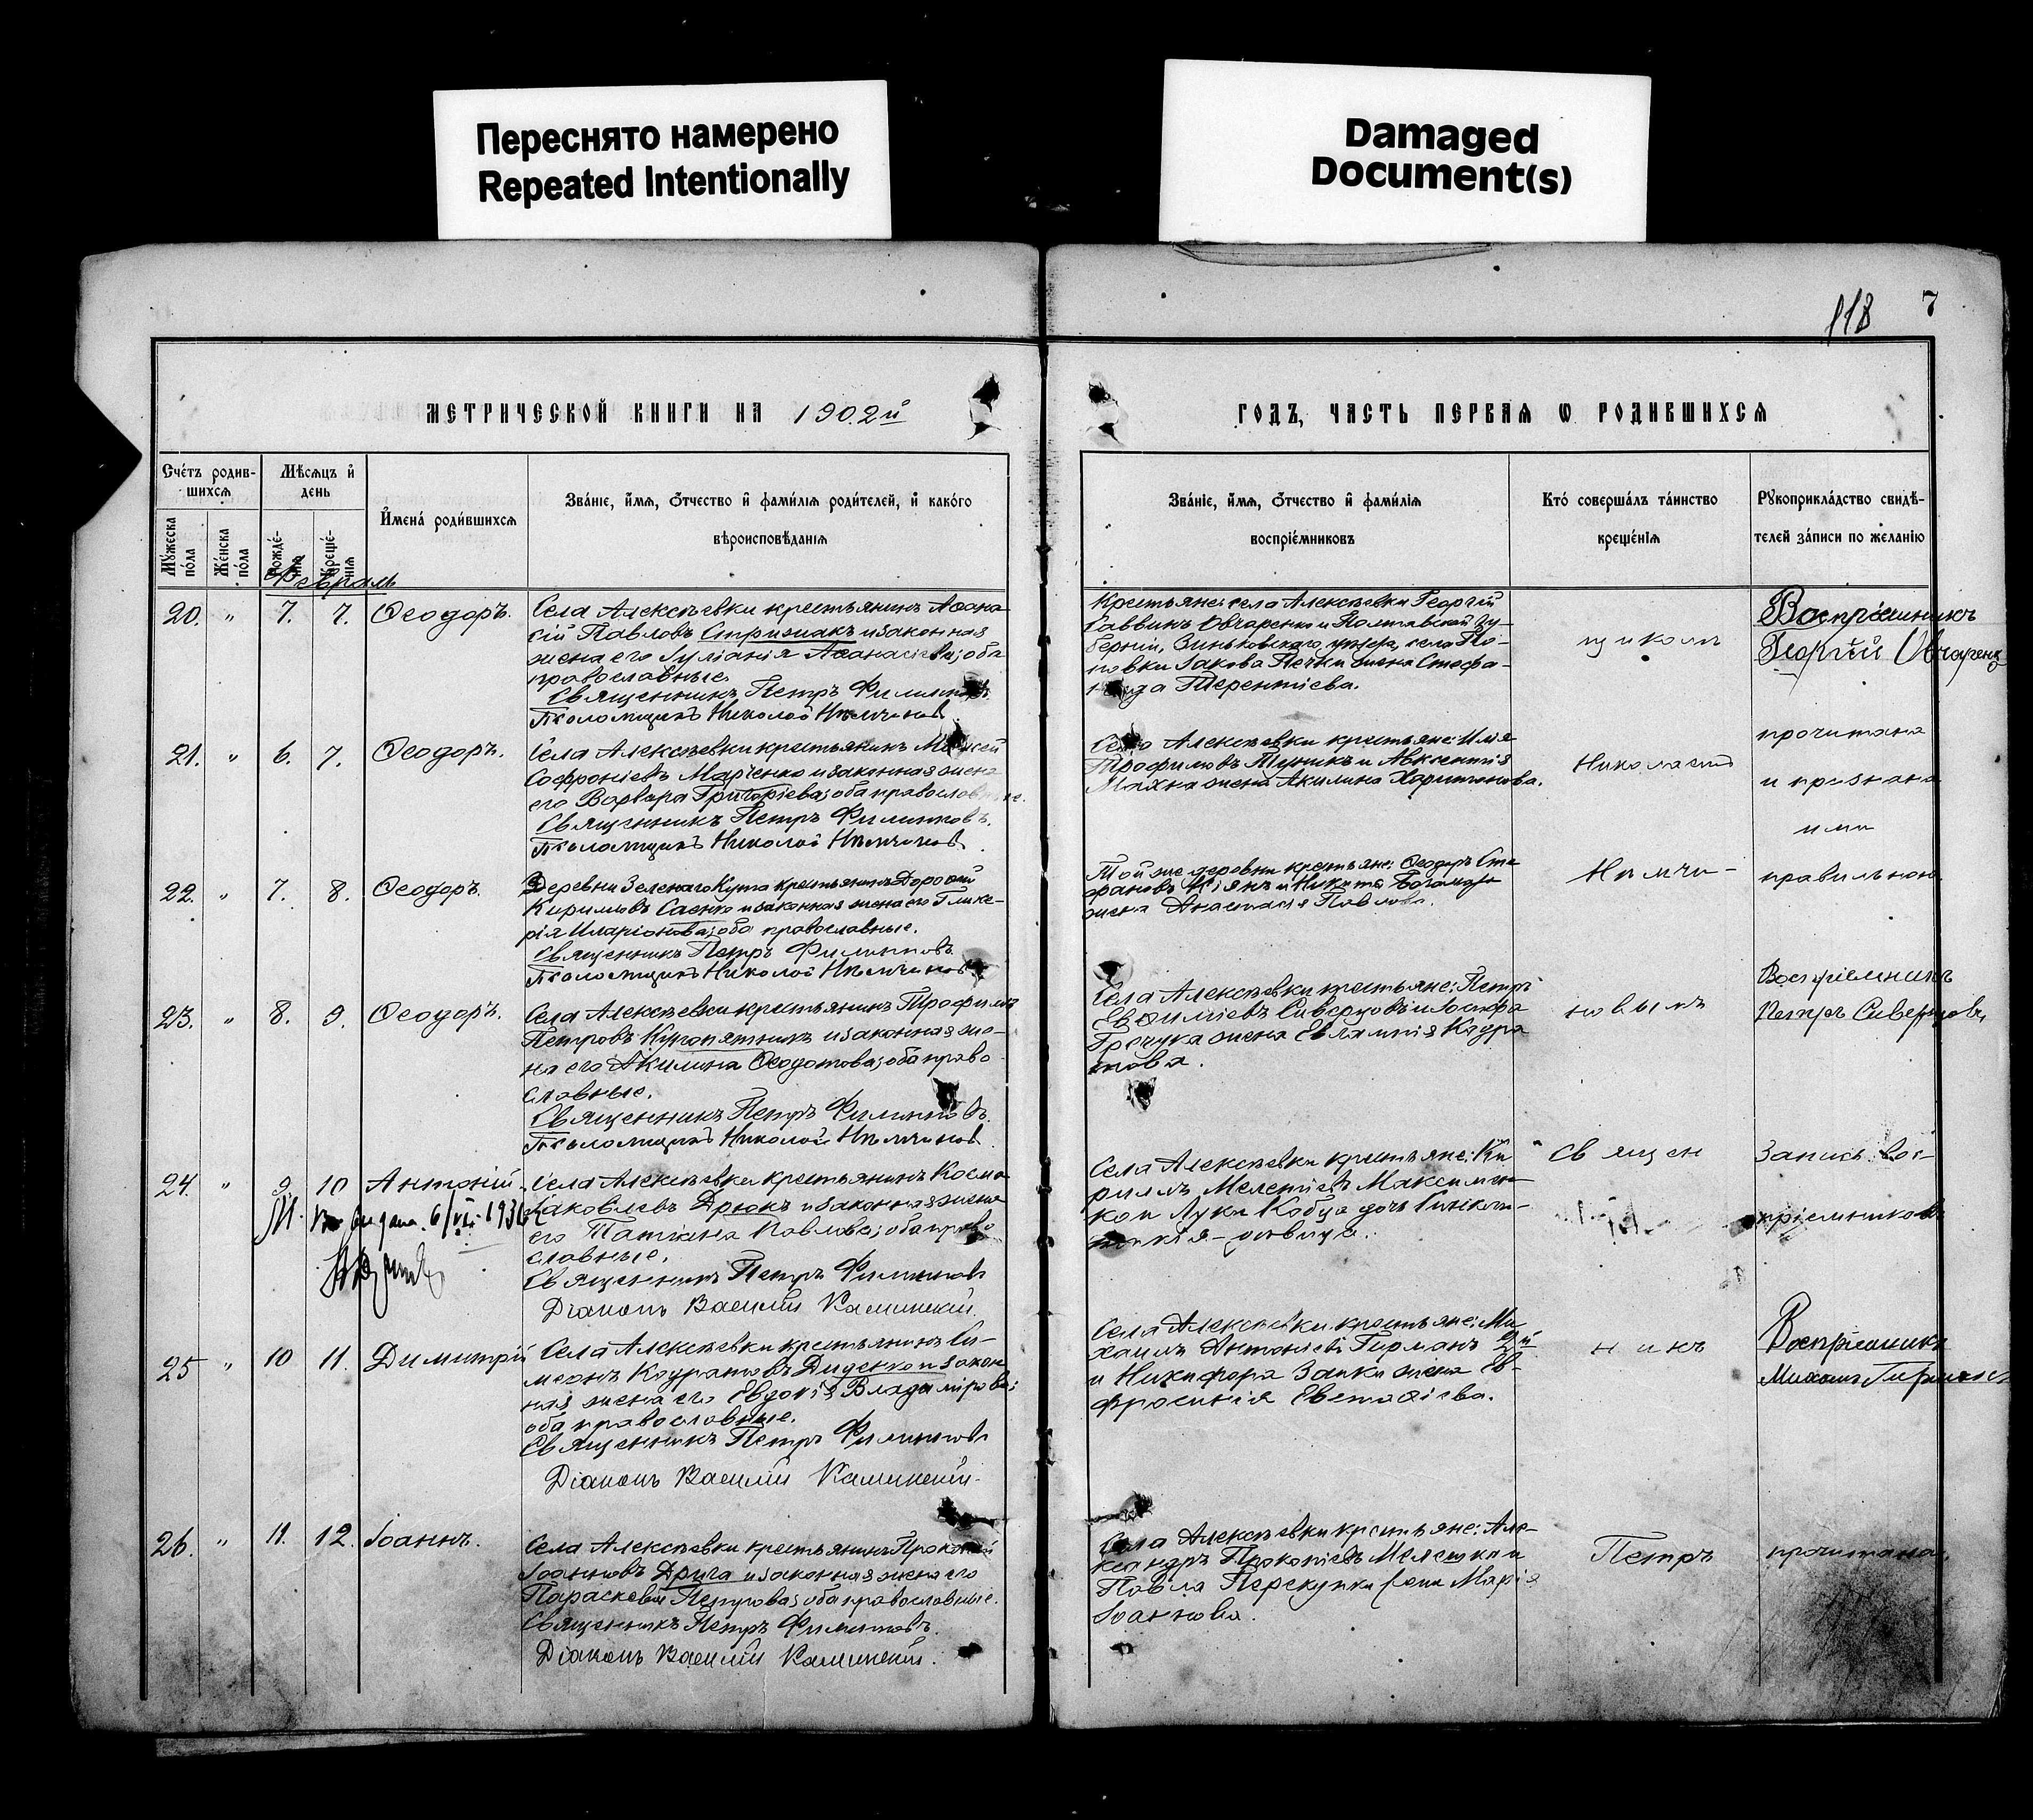 Переснято намерено
Repeated Intentionally
Damaged
Document(s)
118 7
МЕТРИЧЕСКОЙ КНИГИ НА 1902й
ГОДЪ, ЧАСТЬ ПЕРВАЯ Ѡ РОДИВШИХСЯ
Счетъ родив-
шихся
Мѣсяцъ и
день
Мужеска
пола
Женска
пола
Рожде-
нія
Креще-
нія
Имена родившихся
Званіе, имя, отчество и фамилія родителей, и какого
вѣроисповѣданія
Званіе, имя, отчество и фамилія
воспріемниковъ
Кто совершалъ таинство
крещенія
Рукоприкладство свидѣ-
телей записи по желанію
Февраль
20. " 7. 7. Ѳеодоръ.
Села Алексѣевки крестьянинъ Аѳана-
сій Павловъ Стрижакъ и законная
жена его Іуліанія Аѳанасіева; оба
православные.
Священникъ Петръ Филипповъ.
Псаломщикъ Николай Нѣмчиновъ.
Крестьяне: села Алексѣевки Георгій
Саввинъ Овчаренко и Полтавской гу-
берніи, Зиньковскаго уѣзда, села По-
повки Іакова Печки жена Стефа-
нида Терентіева.
Воспріемникъ
Георгій Овчаренко
21. " 6. 7. Ѳеодоръ.
Села Алексѣевки крестьянинъ Моисей
Софроніевъ Маріенко и законная жена
его Варвара Григоріева; оба православные.
Священникъ Петръ Филипповъ.
Псаломщикъ Николай Нѣмчиновъ.
Села Алексѣевки крестьяне: Илія
Трофимовъ Тупикъ и Авксентія
Махна жена Акилина Харитонова.
Николаемъ
прочитана
и признана
ими
22. " 7. 8. Ѳеодоръ.
Деревни Зеленаго Кута крестьянинъ Дороѳей
Кирилловъ Саенко и законная жена его Глике-
рія Иларіонова; оба православные.
Священникъ Петръ Филипповъ.
Псаломщикъ Николай Нѣмчиновъ.
Той же деревни крестьяне: Ѳеодоръ Сте-
фановъ и Никита
жена Анастасія Павлова.
Нѣмчи-
правильною.
23. " 8. 9. Ѳеодоръ.
Села Алексѣевки крестьянинъ Трофимъ
Петровъ Куропятникъ и законная же-
на его Акилина Ѳеодотова; оба право-
славные.
Священникъ Петръ Филипповъ.
Псаломщикъ Николай Нѣмчиновъ.
Села Алексѣевки крестьяне: Петръ
Евѳиміевъ Сиверцовъ и Іосифа
Гречука жена Евлампія Кодра-
това.
новымъ
Воспріемникъ
Петръ Сиверцовъ,
24. " 9. 10 Антоній.
6/VII 1936
Села Алексѣевки крестьянинъ Косма
Іаковлевъ Дрюкъ и законная жена
его Татіана Павлова; оба право-
славные.
Священникъ Петръ Филипповъ
Діаконъ Василій Калинскій.
Села Алексѣевки крестьяне: Ки-
риллъ Мелетіевъ Максимен-
ко и Луки Кобца дочь
дѣвица.
Священ
Запись вос-
пріемниковъ
25 " 10 11. Димитрій
Села Алексѣевки крестьянинъ Си-
меонъ Кодратовъ Диденко и закон-
ная жена его Евдокія Владимірова;
оба православные.
Священникъ Петръ Филипповъ
Діаконъ Василій Калинскій.
Села Алексѣевки крестьяне: Ми-
хаилъ Антоніевъ Гирманъ 2й
и Никифора Заики жена Ев-
фросинія Евстафіева.
никъ
Воспріемникъ
Михаилъ Гирманъ
26. " 11. 12. Іоаннъ.
Села Алексѣевки крестьянинъ Прокопій
Іоанновъ Друга и законная жена его
Параскева Петрова; оба православные.
Священникъ Петръ Филипповъ.
Діаконъ Василій Калинскій.
Села Алексѣевки крестьяне: Але-
ксандръ Прокопіевъ Мелешко и
Павла Перекупки жена Марія
Іоаннова.
Петръ
прочитана